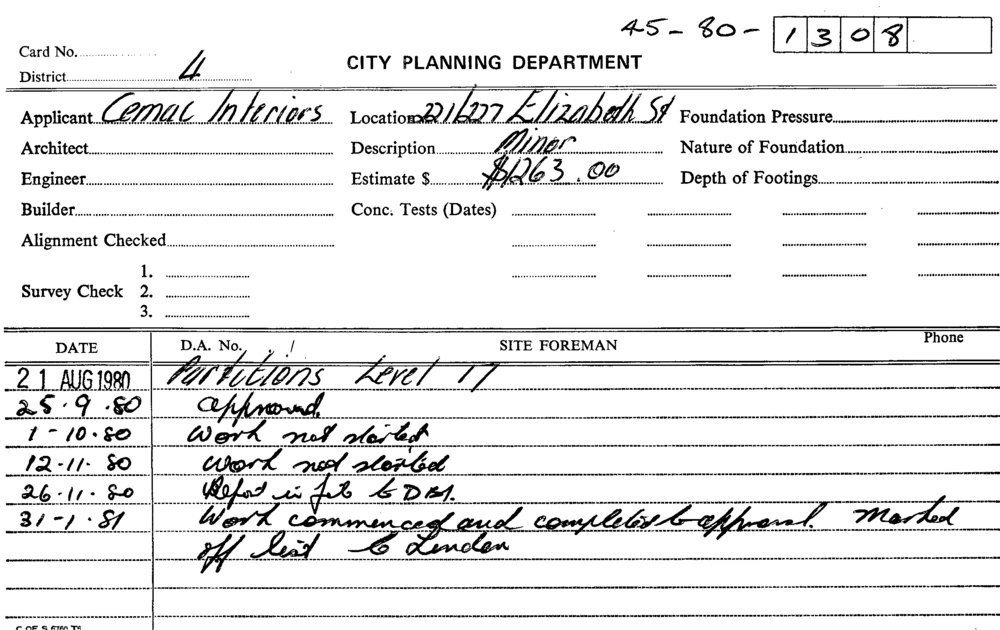 45-80-1308
Card No.
District 4
CITY PLANNING DEPARTMENT
Applicant Cemac Interiors Location 221/227 Elizabeth St Foundation Pressure
Architect Description Minor Nature of Foundation
Engineer Estimate $ $1263.00 Depth of Footings
Builder Conc. Tests (Dates)
Alignment Checked
1.
Survey Check 2.
3.
DATE D.A. No. / SITE FOREMAN Phone
21 AUG 1980 Partitions Level 17
25.9.80 approved.
1-10.80 Work not started
12-11.80 Work not started
26.11.80 Report in to
31-1.81 Work commenced and completed to approval. Marked
off list
C OF S 6760 T5